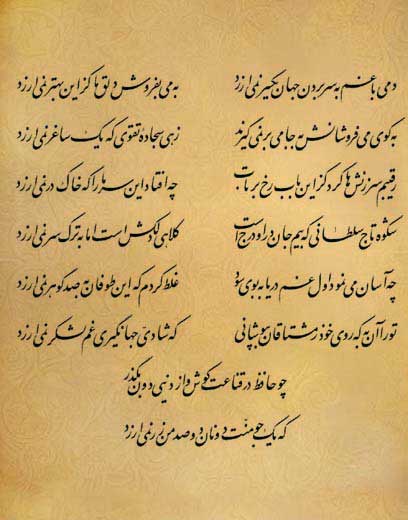 دمی با غم به سر بردن جهان یکسر نمی ارزد به می بفروش دلق ما کز این بهتر نمی ارزد
به کوی می فروشانش به جامی بر نمی گیرند زهی سجاده تقوی که یک ساغر نمی ارزد
رقیبم سرزنش ها کرد کز این باب رخ برتاب چه افتاد این سر ما را که خاک در نمی ارزد
شکوه تاج سلطانی که بیم جان در او درج است کلاهی دلکش است اما به ترک سر نمی ارزد
چه آسان می نمود اول غم دریا به بوی سود غلط کردم که این طوفان به صد گوهر نمی ارزد
تو را آن به که روی خود ز مشتاقان بپوشانی که شادی جهانگیری غم لشکر نمی ارزد
چو حافظ در قناعت کوش و از دنیی دون بگذر
که یک جو منت دونان دو صد من زر نمی ارزد